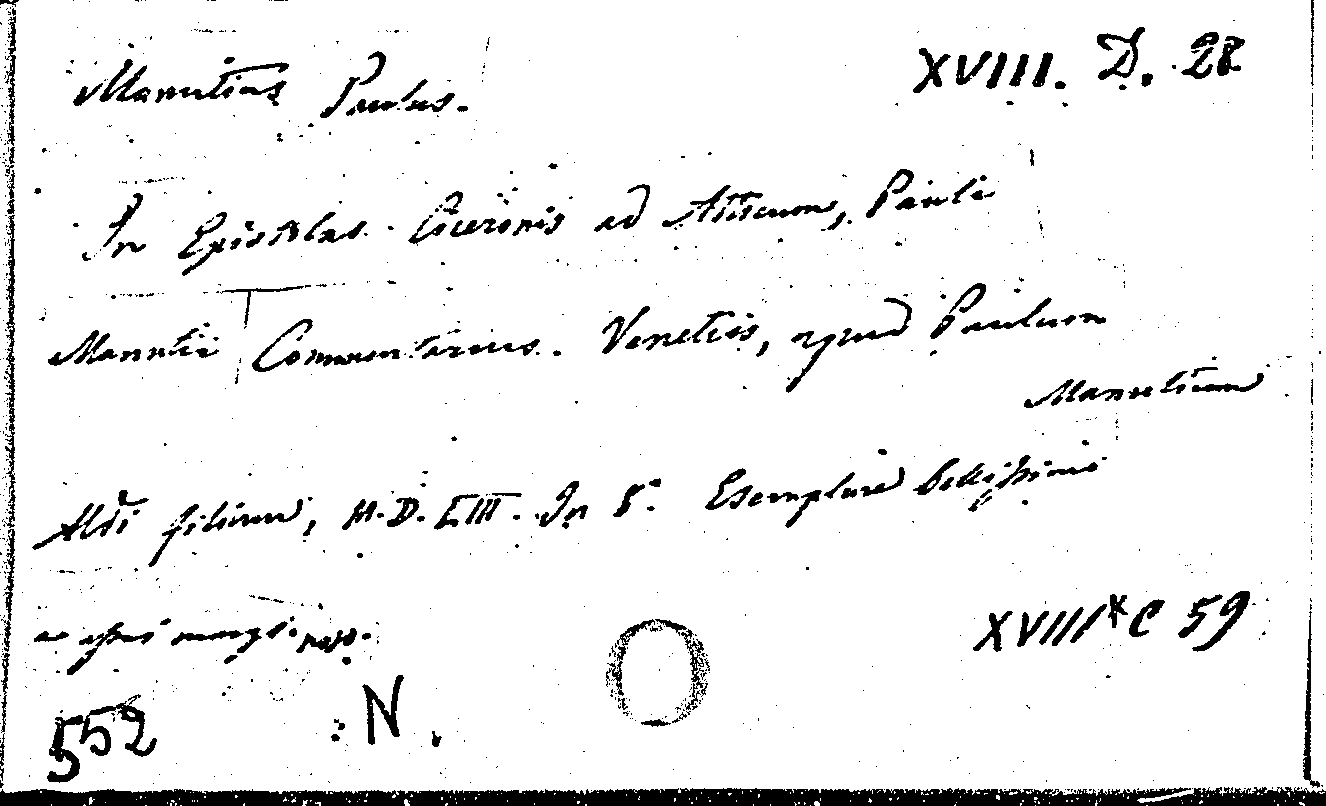 Manutius Paulus. XVIII. D. 28
In Epistolas Ciceronis ad Atticum, Pauli
Manutii Commentarius. Venetiis, apud Paulum
Manutium
Aldi filium, M.D.LIII. In 8°. Esemplare bellissimo
e assai margi: nato.
XVIII* C 59
552 N.